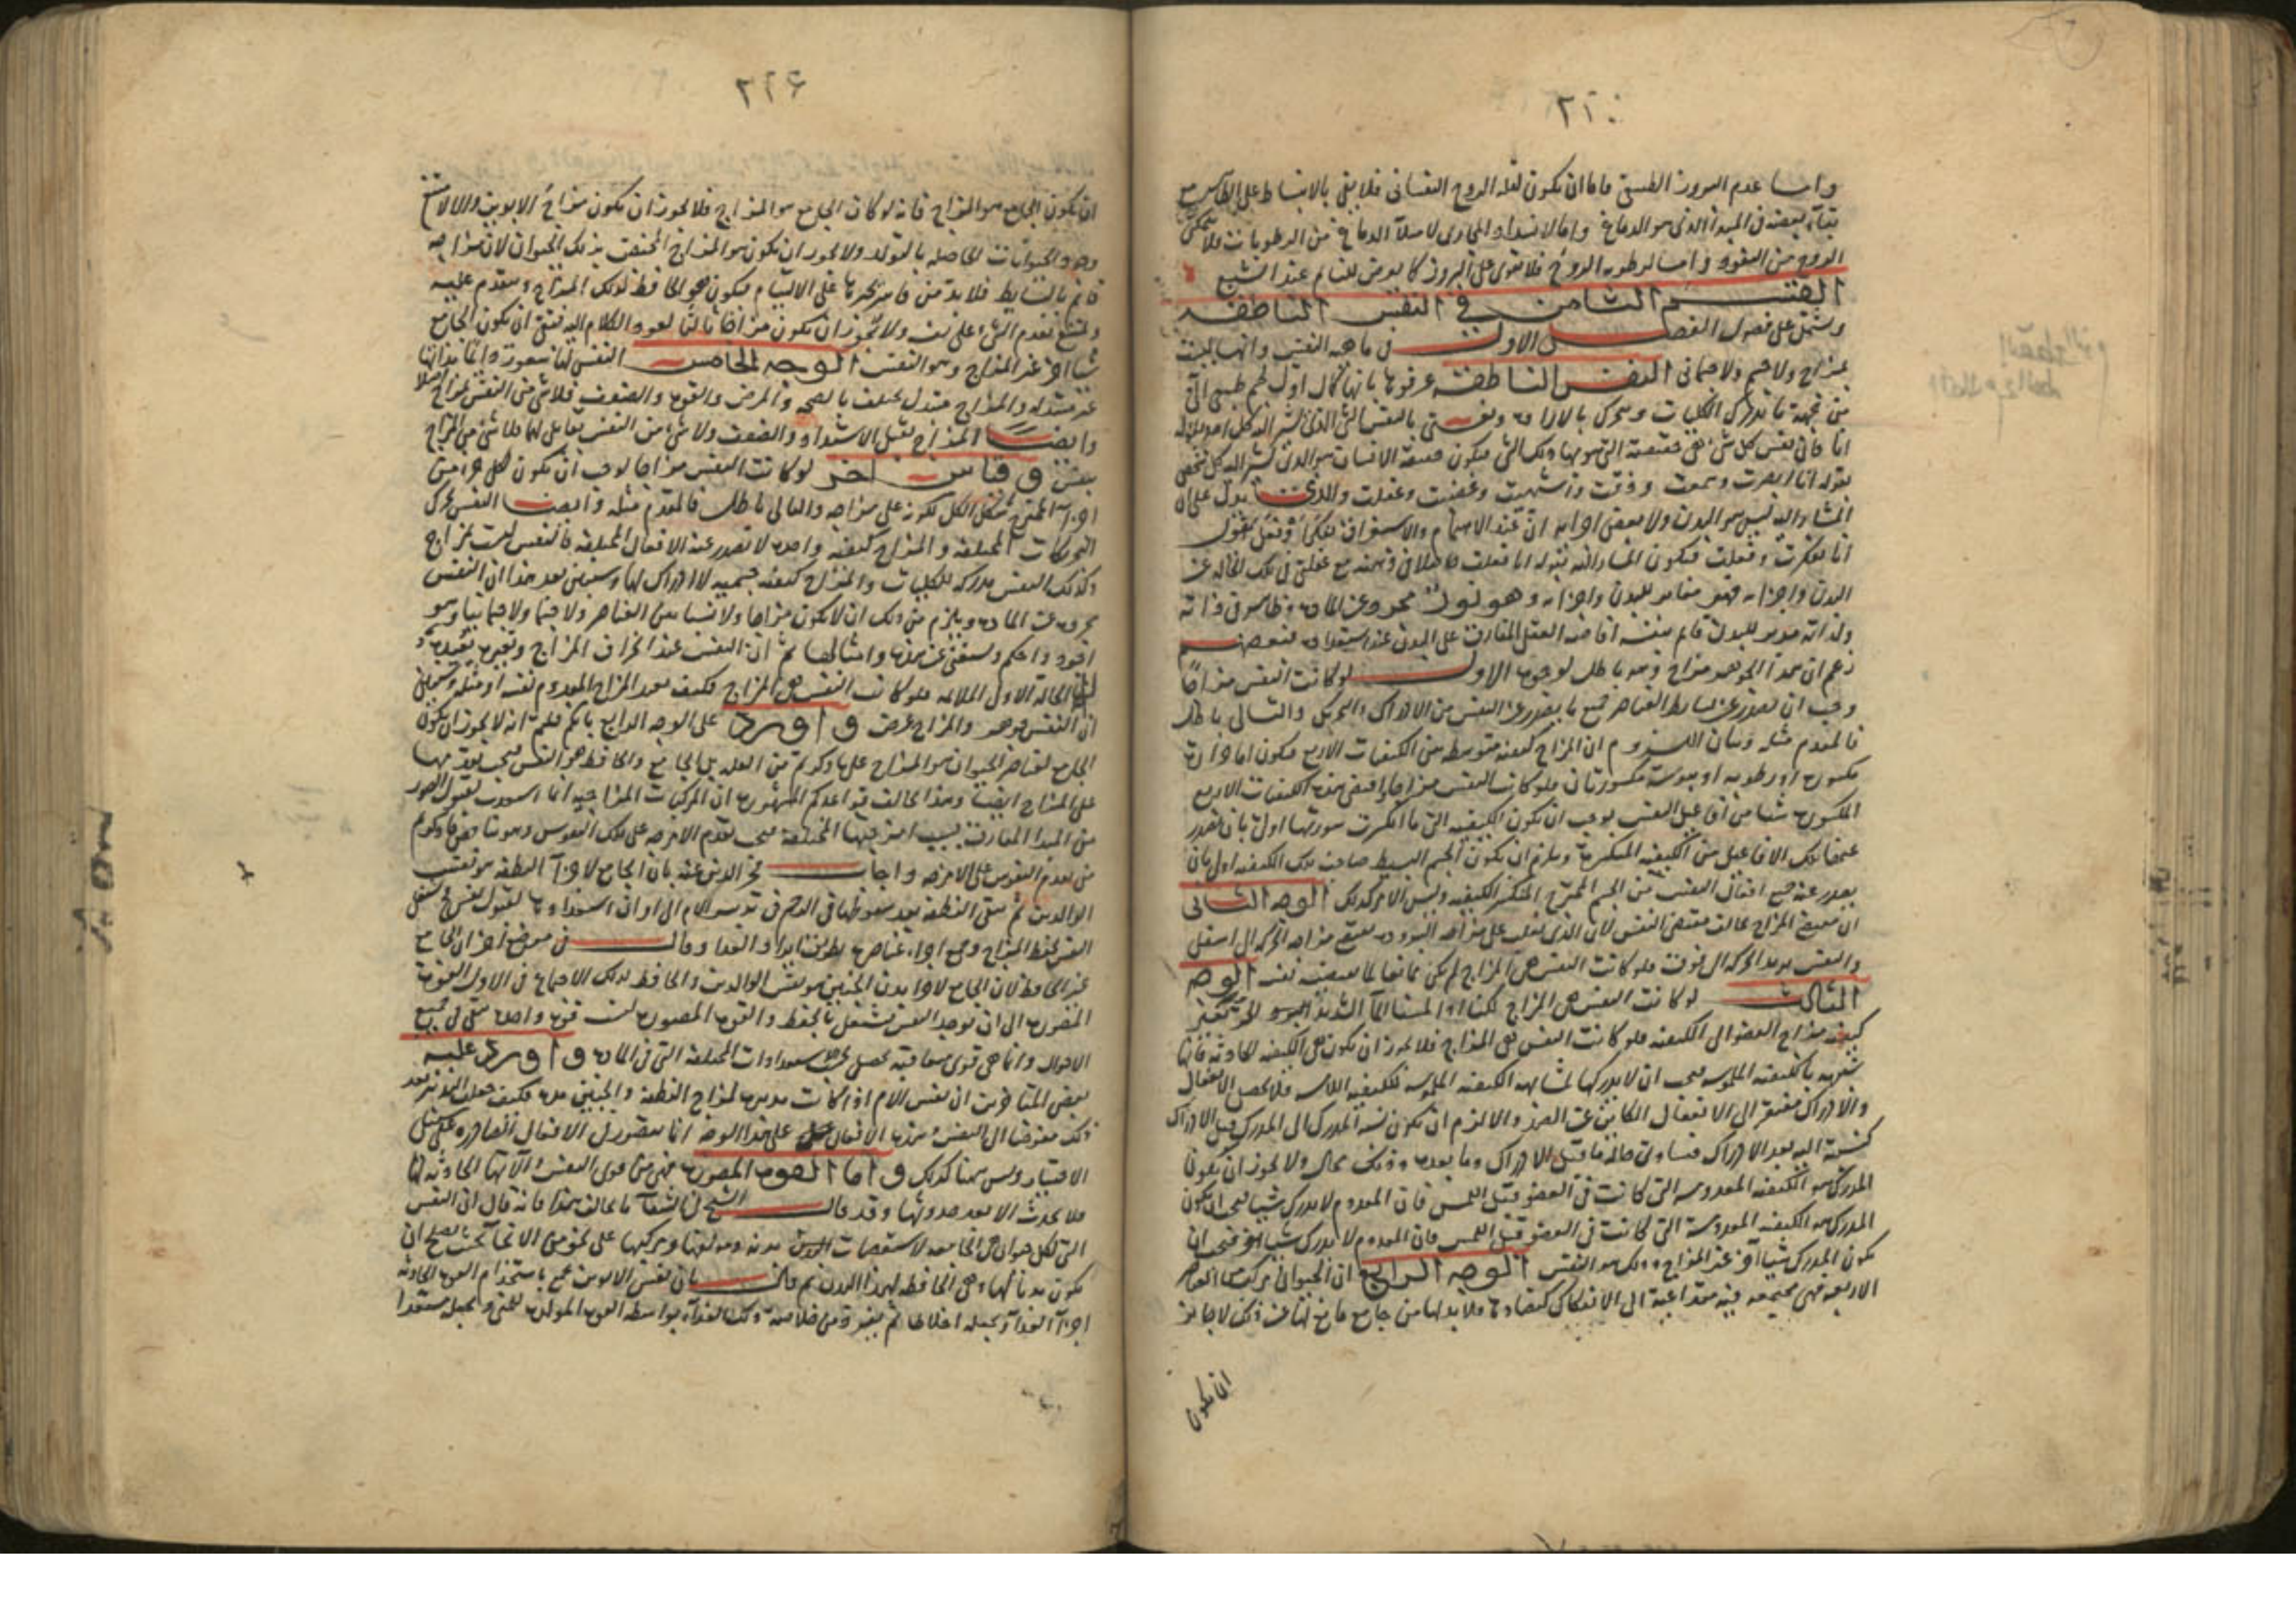 ٢٢٠
واما عدم البروز الطبيعى فاما ان يكون لقلة الروح النفسانى فلا يفى بالانبساط على الظاهر مع
بقاء بعضه فى المبدأ الذى هو الدماغ واما لانسداد المجارى لامتلاء الدماغ من الرطوبات فلا يتمكن
الروح من النفوذ واما لرطوبة الروح فلا تقوى على البروز كما يعرض للنائم عند الشبع
القسم الثامن فى النفس الناطقة
ويشتمل على فصول الفصل الاول فى ماهية النفس وانها ليست
بمزاج ولا جسم ولا جسمانى النفس الناطقة عرفوها بانها كمال اول لجسم طبيعى آلى
من جهة ما تدرك الكليات وتتحرك بالارادة ونعنى بالنفس الشئ الذى يشير اليه كل احد بقوله
انا فان نفس كل شئ هى حقيقته التى هو بها ذلك الشئ فيكون حقيقة الانسان هو الذى يشير اليه كل شخص
بقوله انا ابصرت وسمعت وذقت واشتهيت وغضبت وعقلت والذى يدل على ان
المشار اليه ليس هو البدن ولا بعض اجزائه ان عند الاهتمام والاستغراق بفكر او فعل يقول
انا تفكرت وفعلت فيكون المشار اليه بقوله انا فعلت حاصلا فى ذهنه مع غفلتى فى تلك الحالة عن
البدن واجزائه فهو مغاير للبدن واجزائه وهو نور مجرد عن المادة ظاهر فى ذاته
ولذاته مدبر للبدن قائم بنفسه افاضه العقل المفارق على البدن عند استعداده بعضهم
زعم ان هذا الجوهر مزاج وهو باطل لوجوه الاول لو كانت النفس مزاجا
وجب ان يصدر عن بسائط العناصر جميع ما يصدر عن النفس من الادراك والتحريك والتالى باطل
فالمقدم مثله وبيان اللزوم ان المزاج كيفية متوسطة من الكيفيات الاربع فيكون اما حرارة
مكسورة او رطوبة او يبوسة مكسورتان فلو كانت النفس مزاجا واقتضى هذه الكيفيات الاربع
المكسورة شيئا من افاعيل النفس يوجب ان يكون الكيفية التى ما انكسرت سورتها اولى بان يصدر
عنها تلك الافاعيل من الكيفية المنكسرة ويلزم ان يكون الجسم البسيط صاحب تلك الكيفية اولى بان
يصدر عنه جميع افعال النفس من الجسم الممتزج المنكسر الكيفية وليس الامر كذلك الوجه الثانى
ان مقتضى المزاج يخالف مقتضى النفس لان الذى يغلب على مزاجه البرودة يقتضى مزاجه الحركة الى اسفل
والنفس يريد الحركة الى فوق فلو كانت النفس هى المزاج لم يكن ممانعا لما يقتضيه نفسه الوجه
الثالث لو كانت النفس هى المزاج لكنا اذا لمسنا الماء الشديد البرد
كيفية مزاج العضو الى الكيفية فلو كانت النفس هى المزاج فلا يجوز ان يكون هى الكيفية الحادثة فانها
شبيهة بالكيفية الملموسة فيجب ان لا يدركها لمشابهة الكيفية الملموسة للكيفية اللامسة فلا يحصل الانفعال
والادراك مفتقر الى الانفعال الكائن عن الضد والا لزم ان يكون نسبة المدرك الى المدرك قبل الادراك
كنسبته اليه بعد الادراك فتساوى حاله ما قبل الادراك وما بعده وذلك محال ولا يجوز ان يكون
المدرك هو الكيفية المعدومة التى كانت فى العضو قبل اللمس فان المعدوم لا يدرك شيئا فيجب ان يكون
المدرك هو الكيفية المعدومة التى كانت فى العضو قبل اللمس فان المعدوم لا يدرك شيئا فيجب ان
يكون المدرك شيئا آخر غير المزاج وذلك هو النفس الوجه الرابع ان الحيوان مركب من العناصر
الاربعة فهى مجتمعة فيه متداعية الى الانفكاك كيف لا ولا بد لها من جامع مانع لها عن ذلك لا جائز
ان يكون
٢٢٤
ان يكون الجامع هو المزاج فانه لو كان الجامع هو المزاج فلا يجوز ان يكون مزاج الابوين والا لامتنع
وجود الحيوانات الحاصلة بالتولد ولا يجوز ان يكون هو المزاج المختص بذلك الحيوان لان مزاجه
قائم بالبسائط فلا بد من قاسر يجبرها على الالتيام فيكون هو الحافظ لذلك المزاج ومتقدم عليه
ويمتنع تقدم الشئ على نفسه ولا يجوز ان يكون مزاجا ثالثا لعود الكلام اليه فبقى ان يكون الجامع
شيئا آخر غير المزاج وهو النفس الوجه الخامس النفس لها شعور دائما بذاتها
غير متبدلة والمزاج متبدل مختلف بالصحة والمرض والقوة والضعف فلا شئ من النفس بمزاج اصلا
وايضا المزاج يقبل الاشتداد والضعف ولا شئ من النفس بقابل لهما فلا شئ من المزاج
بنفس وقياس آخر لو كانت النفس مزاجا لوجب ان يكون لكل جزء من
اجزاء الممتزج شكل الكل لكونه على مزاجه والتالى باطل فالمقدم مثله وايضا النفس تحرك
التحريكات المختلفة والمزاج كيفية واحدة لا تصدر عنه الافعال المختلفة فالنفس ليست بمزاج
وكذلك النفس مدركة للكليات والمزاج كيفية جسمية لا ادراك لها وسنبين بعد هذا ان النفس
مجردة عن المادة ويلزم من ذلك ان لا يكون مزاجا ولا شيئا من العناصر ولا جسما ولا جسمانيا وهو
اجود واحكم ويستغنى عن هذه وامثالها ثم ان النفس عند انحراف المزاج وتغيره تعيده
الى الحالة الاولى الملائمة فلو كانت النفس هى المزاج فكيف يعيد المزاج المعدوم نفسه او مثله
ان النفس جوهر والمزاج عرض واورد على الوجه الرابع بانكم قلتم انه لا يجوز ان يكون
الجامع لعناصر الحيوان هو المزاج على ما ذكرتم من العلة بل الجامع والحافظ هو النفس فيجب تقدمها
على المزاج ايضا وهذا يخالف قواعدكم المشهورة ان المركبات المزاجية انما استعدت لقبول الصور
من المبدأ المفارق بسبب امزجتها المختلفة فيجب تقدم الامزجة على تلك النفوس وهو يناقض ما ذكرتم
من تقدم النفوس على الامزجة واجاب فخر الدين عنه بان الجامع لاجزاء النطفة هو نفس
الوالدين ثم تبقى النطفة بعد سقوطها فى الرحم فى تدبير الام الى اوان استعدادها لقبول نفس تستعمل
النفس لحفظ المزاج وجمع اجزاء عناصر بطريق ايراد الغذاء وقال فى موضع آخر ان الجامع
غير الحافظ لان الجامع لاجزاء بدن الجنين هو نفس الوالدين والحافظ لذلك الاجتماع فى الاول القوة
المصورة الى ان توجد النفس فتشتغل بالحفظ والقوة المصورة ليست قوة واحدة تبقى فى جميع
الاحوال وانما هى قوى متعاقبة تحصل بحسب استعدادات المختلفة التى فى المادة واورد عليه
بعض المتأخرين ان نفس الام اذا كانت مدبرة لمزاج النطفة والجنين مدة فكيف
ذلك مفوضا الى النفس وهذه الافعال على هذا الوجه انما يتصور فى الافعال الصادرة على سبيل
الاختيار وليس هنا كذلك واما القوة المصورة فهى من قوى النفس وآلاتها الحادثة لها
فلا يحدث الا بعد حدوثها وقد قال الشيخ فى الشفاء ما يخالف هذا فانه قال ان النفس
التى لكل حيوان هى الجامعة لاستقصات بدنه ومؤلفها ومركبها على نحو من الانحاء بحيث يصلح ان
يكون بدنا لها وهى الحافظة لهذا البدن ثم قال بان نفس الابوين تجمع باستخدام القوة الجاذبة
اجزاء الغذاء وتجعله اخلاطا ثم يفرز من خلاصة ذلك الغذاء بواسطة القوة المولدة المنى وتجعله مستعدا